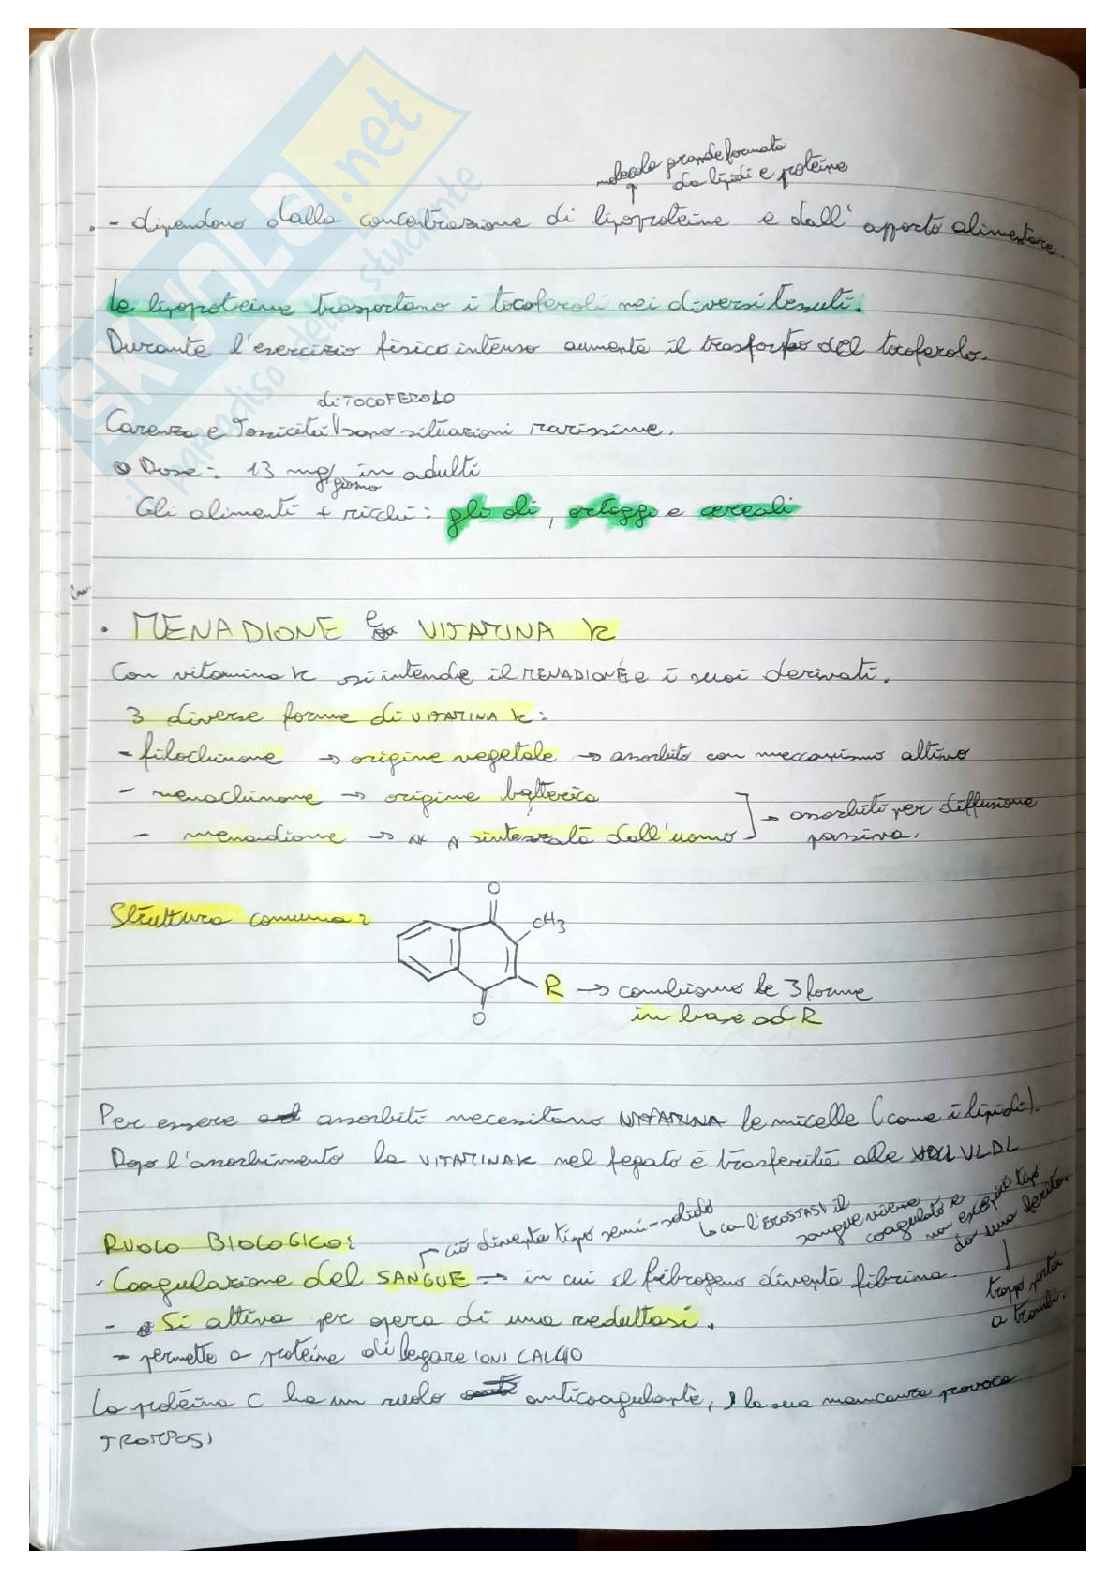 molecola grande formata
da lipidi e proteine
- dipendono dalla concentrazione di lipoproteine e dall' apporto alimentare.
Le lipoproteine trasportano i tocoferoli nei diversi tessuti.
Durante l'esercizio fisico intenso aumenta il trasporto del tocoferolo.
di TOCOFEROLO
Carenza e Tossicità sono situazioni rarissime.
Dose: 13 mg/giorno in adulti
Gli alimenti + ricchi: gli oli, ortaggi e cereali
• MENADIONE e VITAMINA K
Con vitamina K si intende il MENADIONE e i suoi derivati.
3 diverse forme di VITAMINA K:
- fillochinone → origine vegetale → assorbito con meccanismo attivo
- menachinone → origine batterica
- menadione → sintetizzata dall'uomo
→ assorbiti per diffusione
passiva.
Struttura comune:
O
CH3
R → cambiamo le 3 forme
in base ad R
O
Per essere assorbiti necessitano le micelle (come i lipidi).
Dopo l'assorbimento la VITAMINA K nel fegato è trasferita alle VLDL
RUOLO BIOLOGICO:
ciò diventa tipo semi-solido
con l'EMOSTASI il
sangue viene
coagulato e
non esce più tipo
da una ferita.
troppo porta
a trombi.
· Coagulazione del SANGUE → in cui il fibrogeno diventa fibrina.
- Si attiva per opera di una reduttasi.
- permette a proteine di legare IONI CALCIO
La proteina C ha un ruolo anticoagulante, la sua mancanza provoca
TROMBOSI
SKUOLA.net
il paradiso dello studente